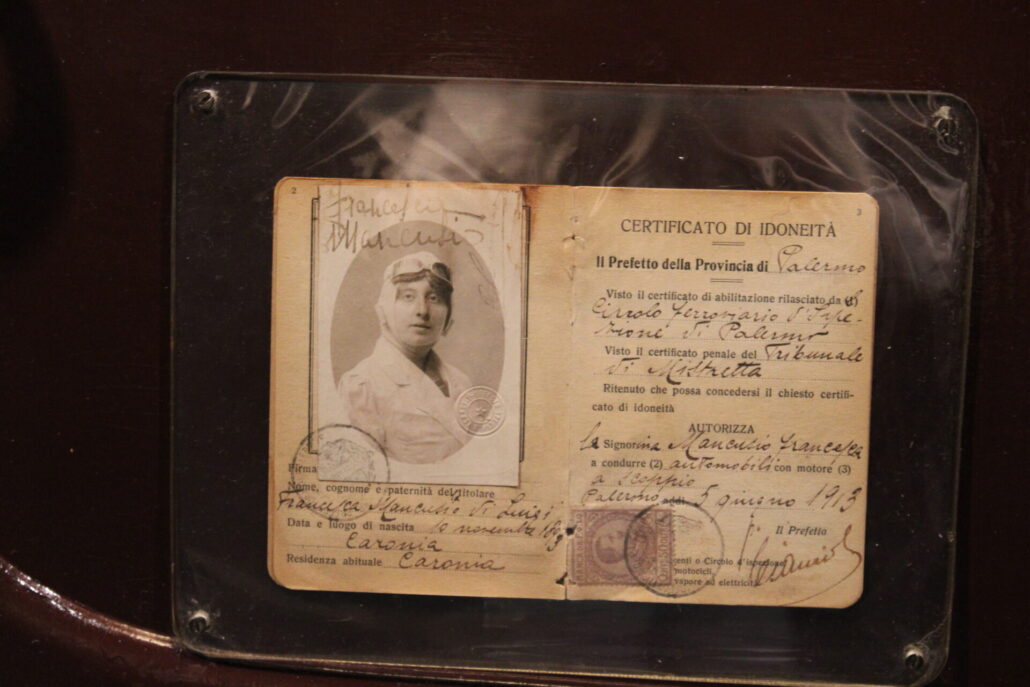 2
Francesca
Mancusio
Firma
Nome, cognome e paternità del titolare
Francesca Mancusio di Luigi
Data e luogo di nascita 10 novembre
Caronia
Residenza abituale Caronia
3
CERTIFICATO DI IDONEITÀ
Il Prefetto della Provincia di Palermo
Visto il certificato di abilitazione rilasciato da (1)
Circolo ferroviario d'Ispe-
zione di Palermo
Visto il certificato penale del Tribunale
di Mistretta
Ritenuto che possa concedersi il chiesto certifi-
cato di idoneità
AUTORIZZA
la Signorina Mancusio Francesca
a condurre (2) automobili con motore (3)
a scoppio
Palermo addì 5 giugno 1913
Il Prefetto
genti o Circolo d'ispezione
motocicli.
vapore ed elettricità